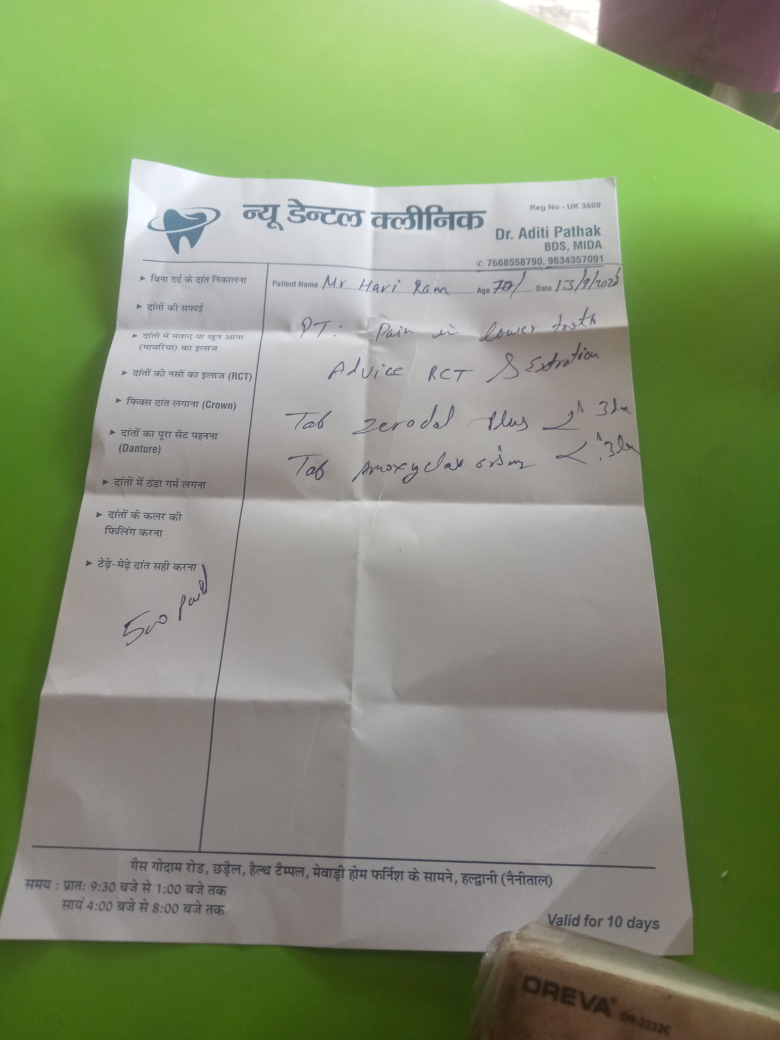 न्यू डेन्टल क्लीनिक
Reg No - UK 3609
Dr. Aditi Pathak
BDS, MIDA
✆ 7668558790, 9634357091
Patient Name Mr Hari Ram Age 70/ Date 13/9/2025
▸ बिना दर्द के दांत निकालना
▸ दांतों की सफाई
▸ दांतों में मवाद या खून आना
(पायरिया) का इलाज
▸ दांतों की नसों का इलाज (RCT)
▸ फिक्स दांत लगाना (Crown)
▸ दांतों का पूरा सैट पहनना
(Danture)
▸ दांतों में ठंडा गर्म लगना
▸ दांतों के कलर की
फिलिंग करना
▸ टेढ़े-मेढ़े दांत सही करना
500 Paid
PT: Pain in lower tooth
Advice RCT & Extration
Tab zerodol Plus
Tab Amoxyclav
गैस गोदाम रोड, छड़ैल, हैल्थ टैम्पल, मेवाड़ी होम फर्निश के सामने, हल्द्वानी (नैनीताल)
समय : प्रातः 9:30 बजे से 1:00 बजे तक
सायं 4:00 बजे से 8:00 बजे तक
Valid for 10 days
OREVA